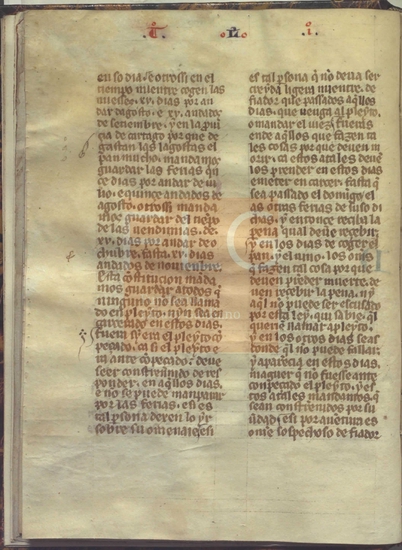 .T. L .I.
en so dia, e otrossi en el
tiempo mientre cogen las
miesses, xv, dias por an
dar dagosto, e xv, andados
de setiembre, y en la puī
cia de cartago por que de
gastan las lagostas el
pan mucho, mandamos
guardar las ferias quī
ce dias por andar de iu
lio, e quinze andados de
agosto, otrossi manda
mos guardar del tiēpo
de las uendimias, de
xv, dias por andar de o
chubre, fasta, xv, dias
andados de nouiembre,
Esta cōstitucion māda
mos guardar a todos q̄
ninguno no sea llama
do en pleyto, nin sea en
carcelado en estos dias,
fueras si era el pleyto cō
peçado, ca si el pleyto e
ra ante cōpeçado, deue
seer constrenido de res
ponder, en aq̄llos dias,
e no se puede manparar
por las ferias, e si es
tal psona de ren lo yr
sobre su omenaie, e si
es tal psona q̄ no deua ser
creyda ligera mientre, de
fiador que passados aq̄llos
dias, que uenga al pleyto,
o mandar el iuez, fueras
ende aq̄llos que fazen ta
les cosas por que deuen m
orir, ca estos atales deue
los prender en estos dias
e meter en carcer, fasta q̄
sea passado el domīgo, e
as otras ferias de suso di
chas, y entonce reciba la
pena qual deue recebir,
y en los dias de coger el
pan, y el uino, los oms
q̄ fazen tal cosa por que
deuen prēder muerte, de
uen recebir la pena, n y
aq̄l no puede ser escusado
por esta ley, qui sabie q̄l
querie mamar a pleyto,
y en los otros dias sear
donde q̄l no puede fallar,
y aparecia en estos dias,
maguer q̄ no fuesse ante
conpeçado el pleyto, y es
tos atales mandamos, q̄
sean constrenidos por iu
izio, e si por auentura es
omē sospechoso de fiador